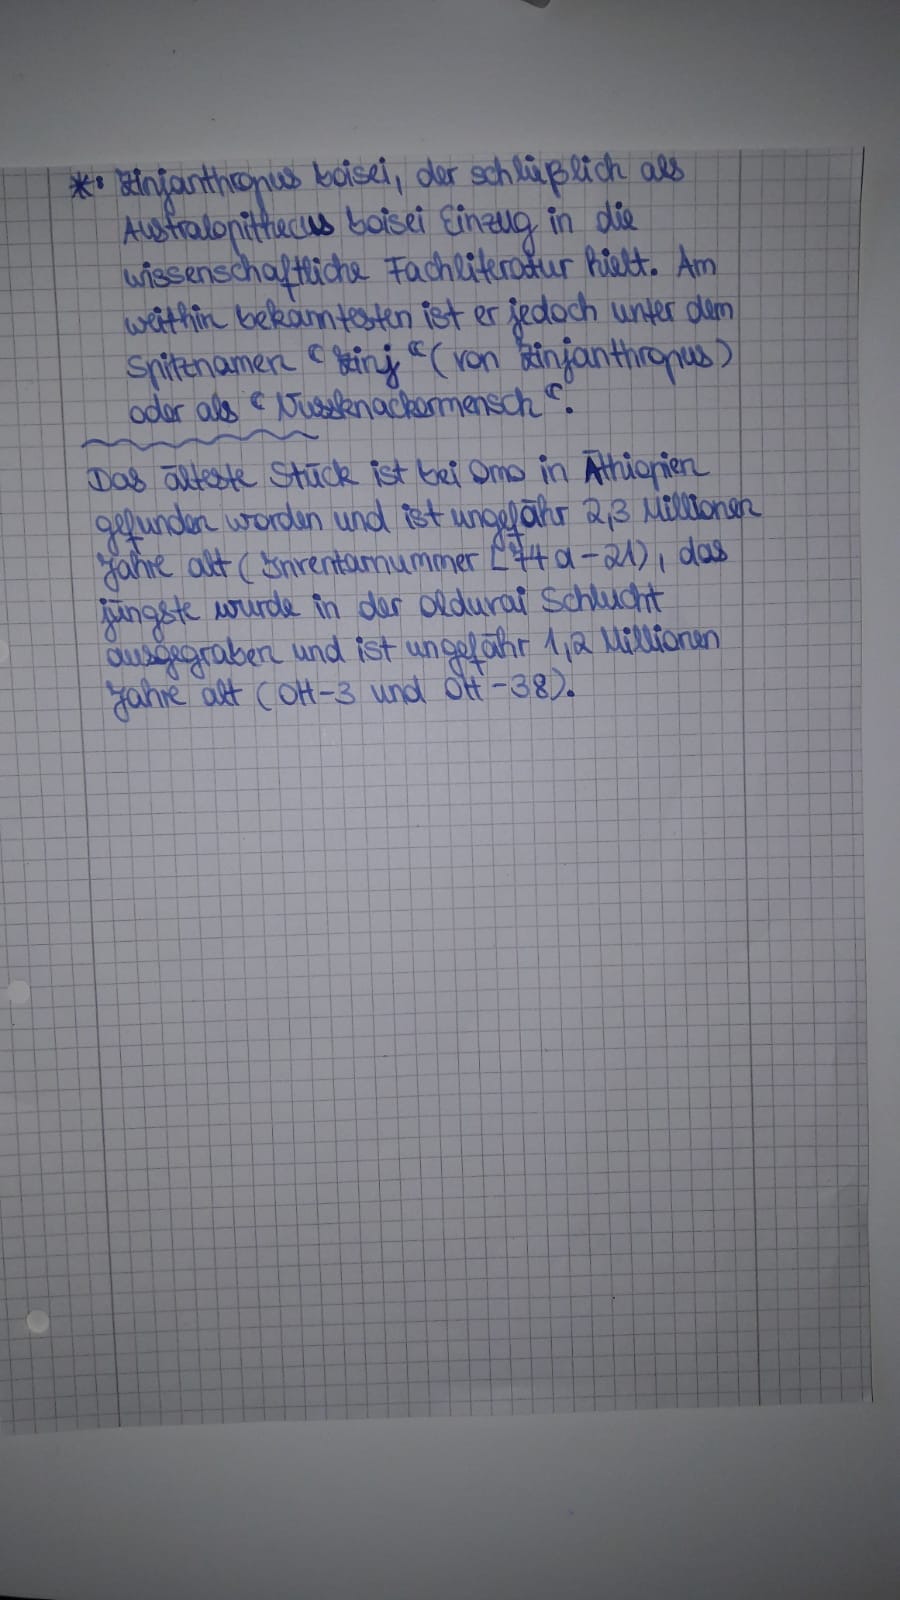 *: Zinjanthropus boisei, der schlüßlich als
Australopithecus boisei Einzug in die
wissenschaftliche Fachliteratur hielt. Am
weithin bekanntesten ist er jedoch unter dem
Spitznamen "Zinj" (von Zinjanthropus)
oder als "Nussknackermensch".
Das älteste Stück ist bei Omo in Äthiopien
gefunden worden und ist ungefähr 2,3 Millionen
Jahre alt (Inventarnummer L74a-21), das
jüngste wurde in der Oldurai Schlucht
ausgegraben und ist ungefähr 1,2 Millionen
Jahre alt (OH-3 und OH-38).